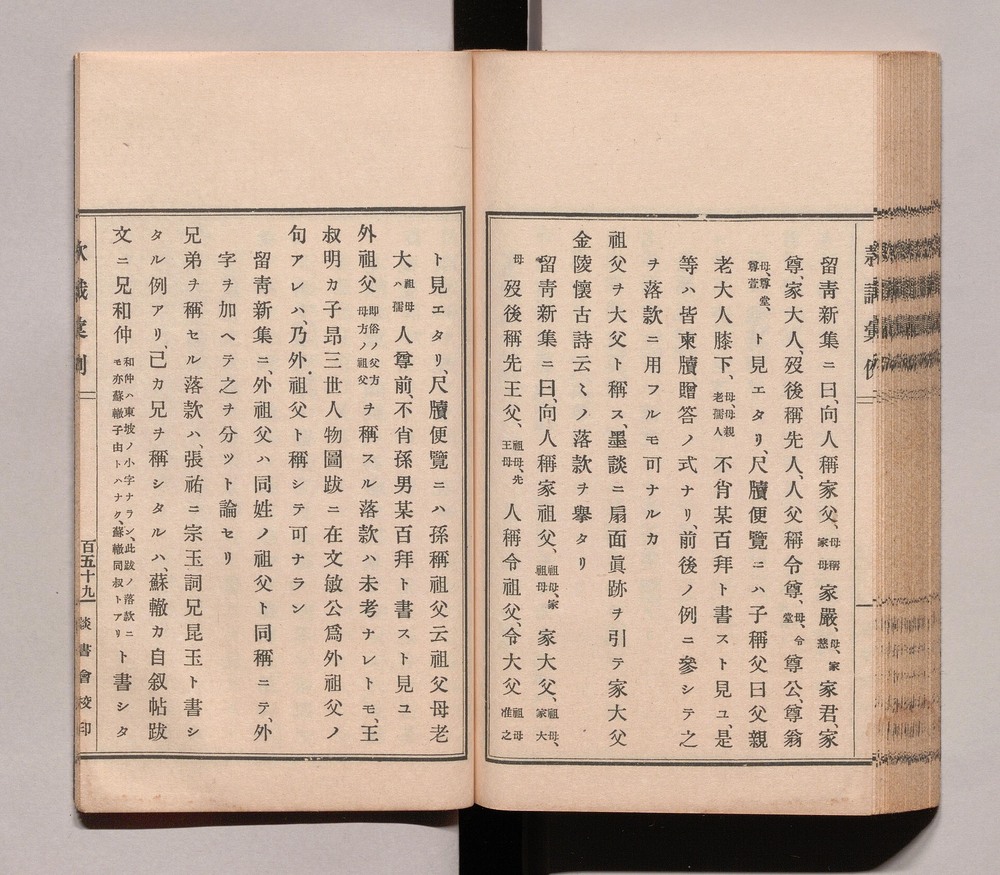 留靑新集ニ曰、向人稱家父、母稱家母家嚴、母、家慈家君、家
尊、家大人、歿後稱先人、人父稱令尊、母、令堂尊公、尊翁
母、尊堂、尊萱ト見エタリ、尺牘便覽ニハ子稱父曰父親
老大人膝下、母、母親老孺人不肖某百拜ト書スト見ユ、是
等ハ皆柬牘贈答ノ式ナリ、前後ノ例ニ參シテ之
ヲ落款ニ用フルモ可ナルカ
祖父ヲ大父ト稱ス、墨談ニ扇面眞跡ヲ引テ家大父
金陵懷古詩云〻ノ落款ヲ擧タリ
留靑新集ニ曰、向人稱家祖父、祖母、家祖母家大父、祖母、家大
母歿後稱先王父、祖母、先王母人稱令祖父、令大父祖母准之
ト見エタリ、尺牘便覽ニハ孫稱祖父云祖父母老
大祖母ハ孺人尊前、不肖孫男某百拜ト書スト見ユ
外祖父即俗ノ父方母方ノ祖父ヲ稱スル落款ハ未考ナレトモ、王
叔明カ子昂三世人物圖跋ニ在文敏公爲外祖父ノ
句アレハ、乃外祖父ト稱シテ可ナラン
留靑新集ニ、外祖父ハ同姓ノ祖父ト同稱ニテ、外
字ヲ加ヘテ之ヲ分ツト論セリ
兄弟ヲ稱セル落款ハ、張祐ニ宗玉詞兄昆玉ト書シ
タル例アリ、已カ兄ヲ稱シタルハ、蘇轍カ自叙帖跋
文ニ兄和仲和仲ハ東坡ノ小字ナラン、此跋ノ落款ニモ亦蘇轍子由トハナク、蘇轍同叔トアリト書シタ
百五十九
談書會校印